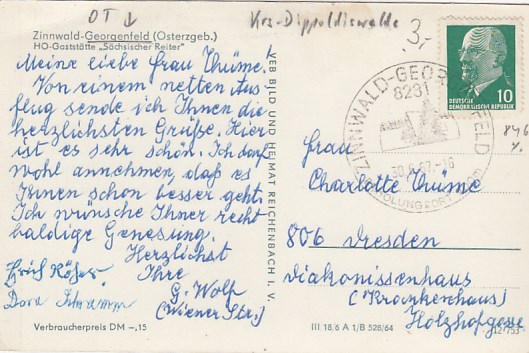 OT ↓
Krs-Dippoldiswalde
3,-
Zinnwald-Georgenfeld (Osterzgeb.)
HO-Gaststätte „Sächsischer Reiter"
Meine liebe Frau Thüme.
Von einem netten Aus-
flug sende ich Ihnen die
herzlichsten Grüße. Hier
ist es sehr schön. Ich darf
wohl annehmen, daß es
Ihnen schon besser geht.
Ich wünsche Ihnen recht
baldige Genesung.
Herzlichst
Ihre
G. Wolf
(Wiener Str.)
Dora Schramm
Verbraucherpreis DM -,15
VEB BILD UND HEIMAT REICHENBACH I. V.
III 18 6 A 1/B 528/64
ZINNWALD-GEORGENFELD
8231
10
DEUTSCHE
DEMOKRATISCHE REPUBLIK
Frau
Charlotte Thüme
806 Dresden
Diakonissenhaus
(Krankenhaus)
Holzhofgasse